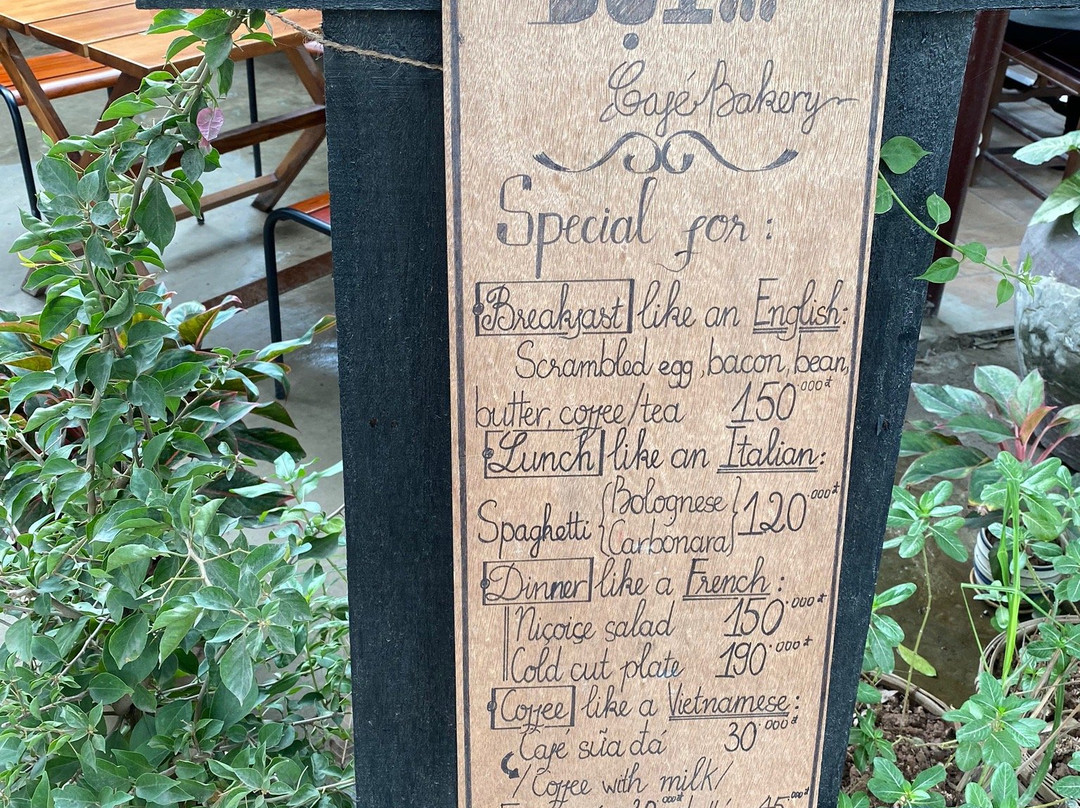 Café Bakery
Special for:
Breakfast like an English:
Scrambled egg, bacon, bean,
butter, coffee/tea 150.000đ
Lunch like an Italian:
Spaghetti {Bolognese} 120.000đ
{Carbonara}
Dinner like a French:
Niçoise salad 150.000đ
Cold cut plate 190.000đ
Coffee like a Vietnamese:
Café sữa đá 30.000đ
/Coffee with milk/